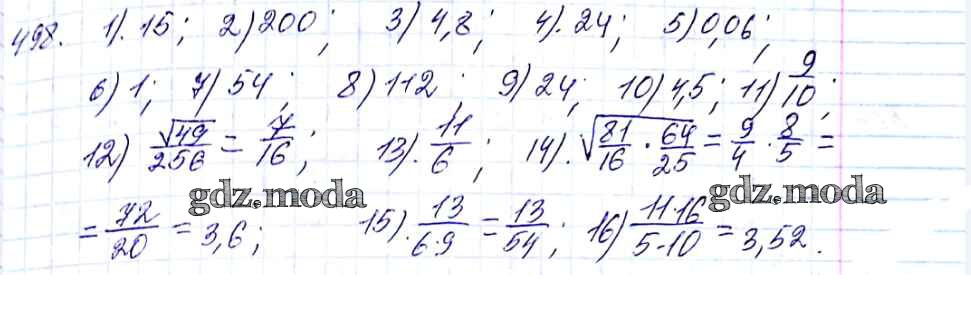 498. 1). 15; 2) 200; 3) 4,8; 4). 24; 5) 0,06;
6) 1; 7) 54; 8) 112; 9) 24; 10) 4,5; 11) 9/10;
12) √49/256 = 7/16; 13). 11/6; 14). √(81/16 · 64/25) = 9/4 · 8/5 =
gdz.moda gdz.moda
= 72/20 = 3,6; 15). 13/(6·9) = 13/54; 16) 11·16/(5·10) = 3,52.